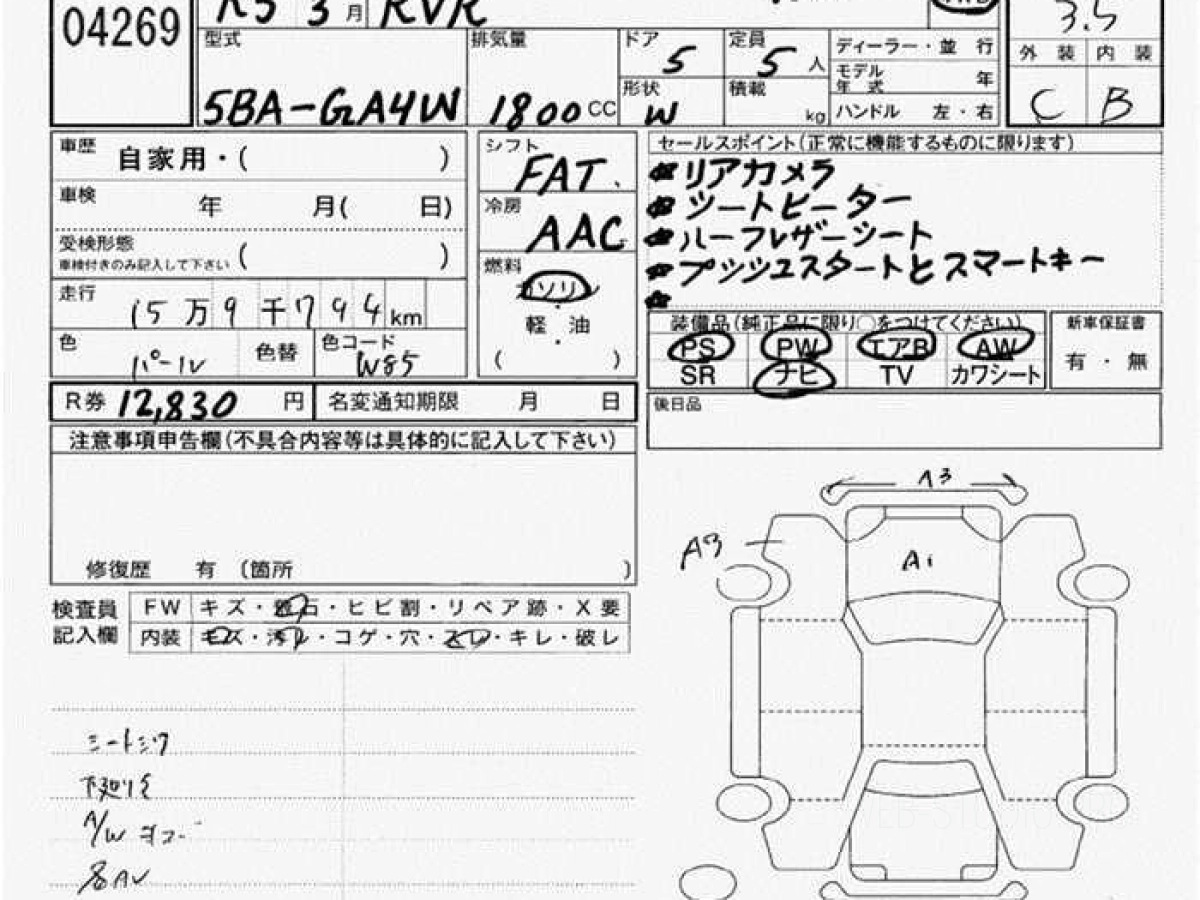 04269
R5 3月 RVR
3.5
型式 排気量 ドア 5 定員 5 人 ディーラー・並 行
外 装 内 装
モデル年式 年
5BA-GA4W 1800 CC 形状 W 積載 kg ハンドル 左・右
C B
車歴 自家用・( )
車検 年 月( 日)
受検形態 ( )
車検付きのみ記入して下さい
走行 15万9千794km
色 パール 色替 色コード W85
シフト FAT
冷房 AAC
燃料 ガソリン
軽・油
( )
セールスポイント(正常に機能するものに限ります)
リアカメラ
シートヒーター
ハーフレザーシート
プッシュスタートとスマートキー
装備品(純正品に限り○をつけてください)
PS PW エアB AW
SR ナビ TV カワシート
新車保証書
有・無
R券 12,830 円 名変通知期限 月 日
後日品
注意事項申告欄(不具合内容等は具体的に記入して下さい)
修復歴 有 (箇所 )
検査員記入欄
FW キズ・飛石・ヒビ割・リペア跡・X要
内装 キズ・汚レ・コゲ・穴・スレ・キレ・破レ
シートシワ
下廻りS
A/W
各AU
A3
A3
A1